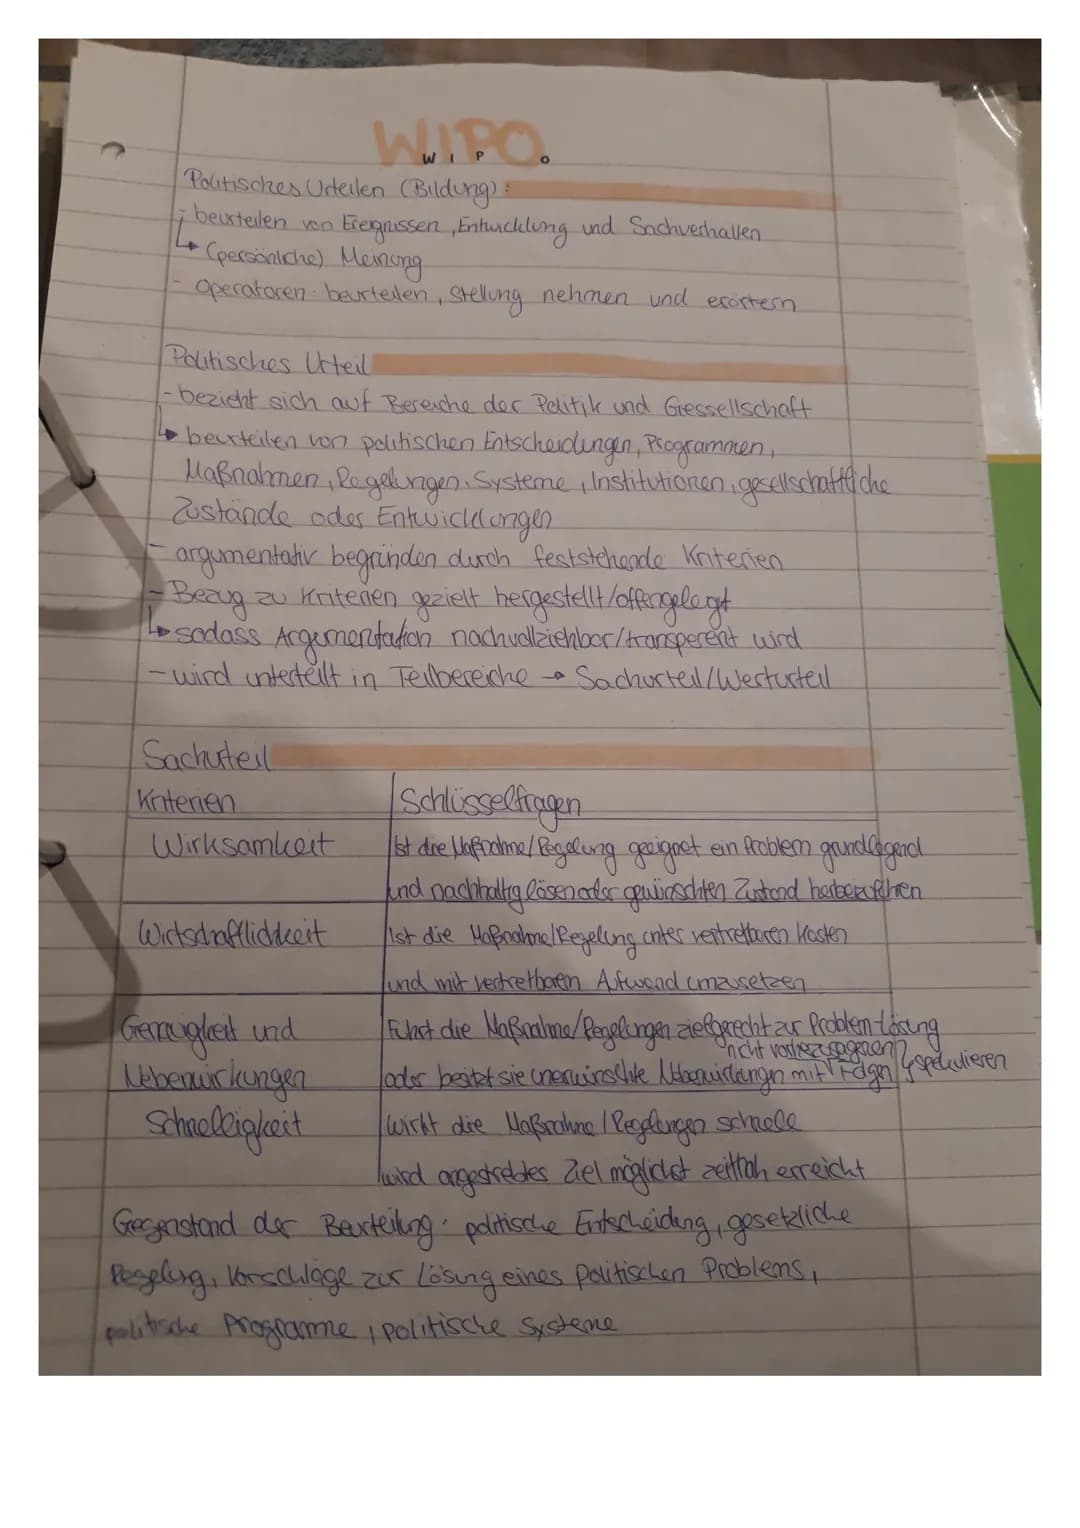 WIPO
W I P O
Politisches Urteilen (Bildung):
- beurteilen von Ereignissen, Entwicklung und Sachverhalten
↳ (persönliche) Meinung
- Operatoren: beurteilen, Stellung nehmen und erörtern
Politisches Urteil
- bezieht sich auf Bereiche der Politik und Gessellschaft
↳ beurteilen von politischen Entscheidungen, Programmen,
Maßnahmen, Regelungen, Systeme, Institutionen, gesellschaftliche
Zustände oder Entwicklungen
- argumentativ begründen durch feststehende Kriterien
- Bezug zu Kriterien gezielt hergestellt/offengelegt
↳ sodass Argumentation nachvollziehbar/transperent wird
- wird unterteilt in Teilbereiche → Sachurteil/Werturteil
Sachurteil
Kriterien Schlüsselfragen
Wirksamkeit Ist die Maßnahme/Regelung geeignet ein Problem grundlegend
und nachhaltig lösen oder gewünschten Zustand herbeizuführen
Wirtschaftlichkeit Ist die Maßnahme/Regelung unter vertretbaren Kosten
und mit vertretbaren Aufwand umzusetzen
Genauigkeit und Führt die Maßnahme/Regelungen zielgerecht zur Problem-Lösung
nicht vorherzusagenen
Nebenwirkungen oder besitzt sie unerwünschte Nebenwirkungen mit Folgen ↳ spekulieren
Schnelligkeit Wirkt die Maßnahme/Regelungen schnell
wird angestrebtes Ziel möglichst zeitnah erreicht
Gegenstand der Beurteilung: politische Entscheidung, gesetzliche
Regelung, Vorschläge zur Lösung eines politischen Problems,
politische Programme, politische Systeme